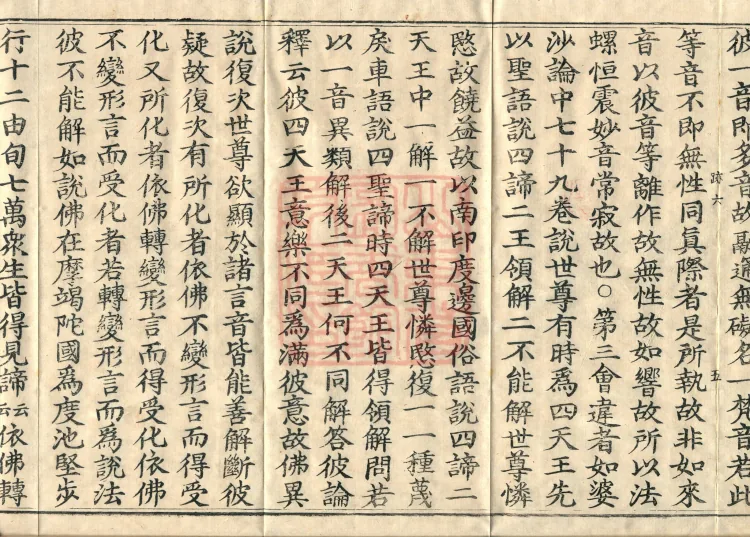 彼一音即多音故融通無礙名一梵音若此
䟽六
五
等音不即無性同眞際者是所執故非如來
音以彼音等離作故無性故如響故所以法
螺恒震妙音常寂故也○第三會違者如婆
沙論中七十九卷說世尊有時爲四天王先
以聖語說四諦二王領解二不能解世尊憐
愍故饒益故以南印度邊國俗語說四諦二
天王中一解一不解世尊憐愍復一一種蔑
戾車語說四聖諦時四天王皆得領解問若
以一音異類解後二天王何不同解答彼論
釋云彼四天王意樂不同爲滿彼意故佛異
說復次世尊欲顯於諸言音皆能善解斷彼
疑故復次有所化者依佛不變形言而得受
化又所化者依佛轉變形言而得受化依佛
不變形言而受化者若轉變形言而爲說法
彼不能解如說佛在摩竭陀國爲度池堅步
行十二由旬七萬眾生皆得見諦云云依佛轉